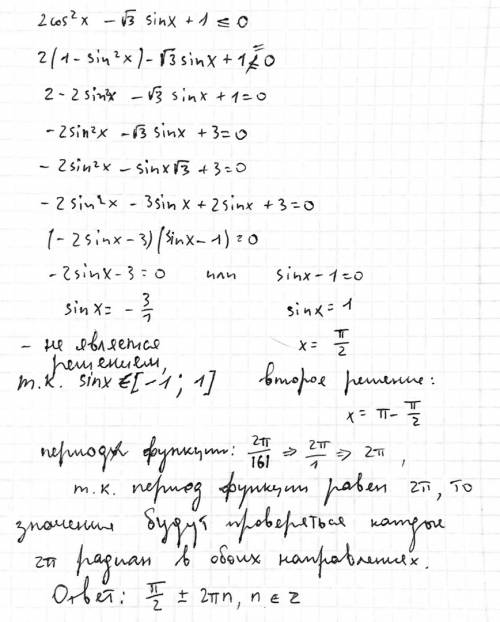 2cos²x - √3 sinx + 1 ≤ 0
2(1 - sin²x) - √3 sinx + 1 = 0
2 - 2sin²x - √3 sinx + 1 = 0
-2sin²x - √3 sinx + 3 = 0
- 2sin²x - sinx√3 + 3 = 0
- 2sin²x - 3sinx + 2sinx + 3 = 0
(-2sinx - 3)(sinx - 1) = 0
-2sinx - 3 = 0 или sinx - 1 = 0
sinx = - 3/1 sinx = 1
- не является x = π/2
решением,
т.к. sinx ∈ [-1; 1] второе решение:
x = π - π/2
период функции: 2π/|6| ⇒ 2π/1 ⇒ 2π,
т.к. период функции равен 2π, то
значения будут проверяться каждые
2π радиан в обоих направлениях.
Ответ: π/2 ± 2πn, n ∈ z